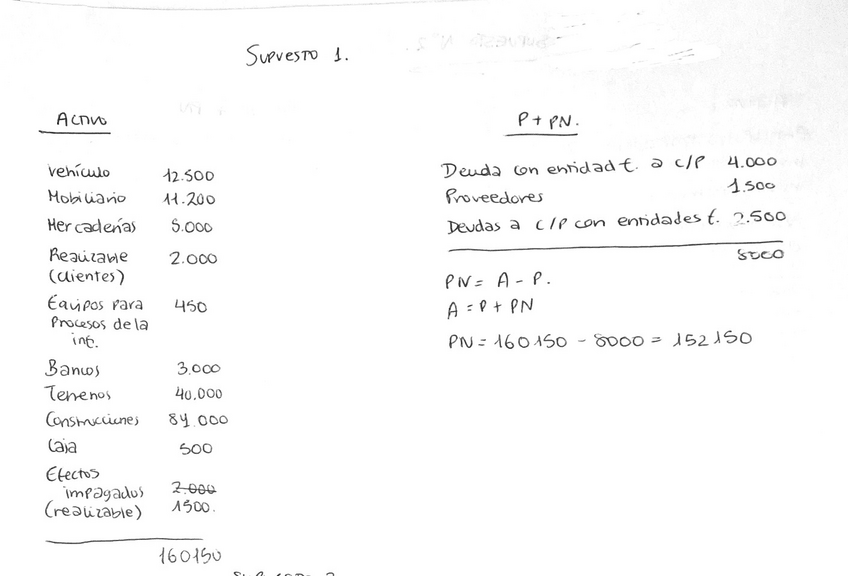 SUPUESTO 1.
ACTIVO
Vehículo 12.500
Mobiliario 11.200
Mercaderías 5.000
Realizable 2.000
(clientes)
Equipos para 450
Procesos de la
inf.
Bancos 3.000
Terrenos 40.000
Construcciones 84.000
Caja 500
Efectos
impagados 2.000
(realizable) 1500.
160150
P + PN.
Deuda con entidad f. a c/P 4.000
Proveedores 1.500
Deudas a c/P con entidades f. 2.500
8000
PN = A - P.
A = P + PN
PN = 160150 - 8000 = 152150